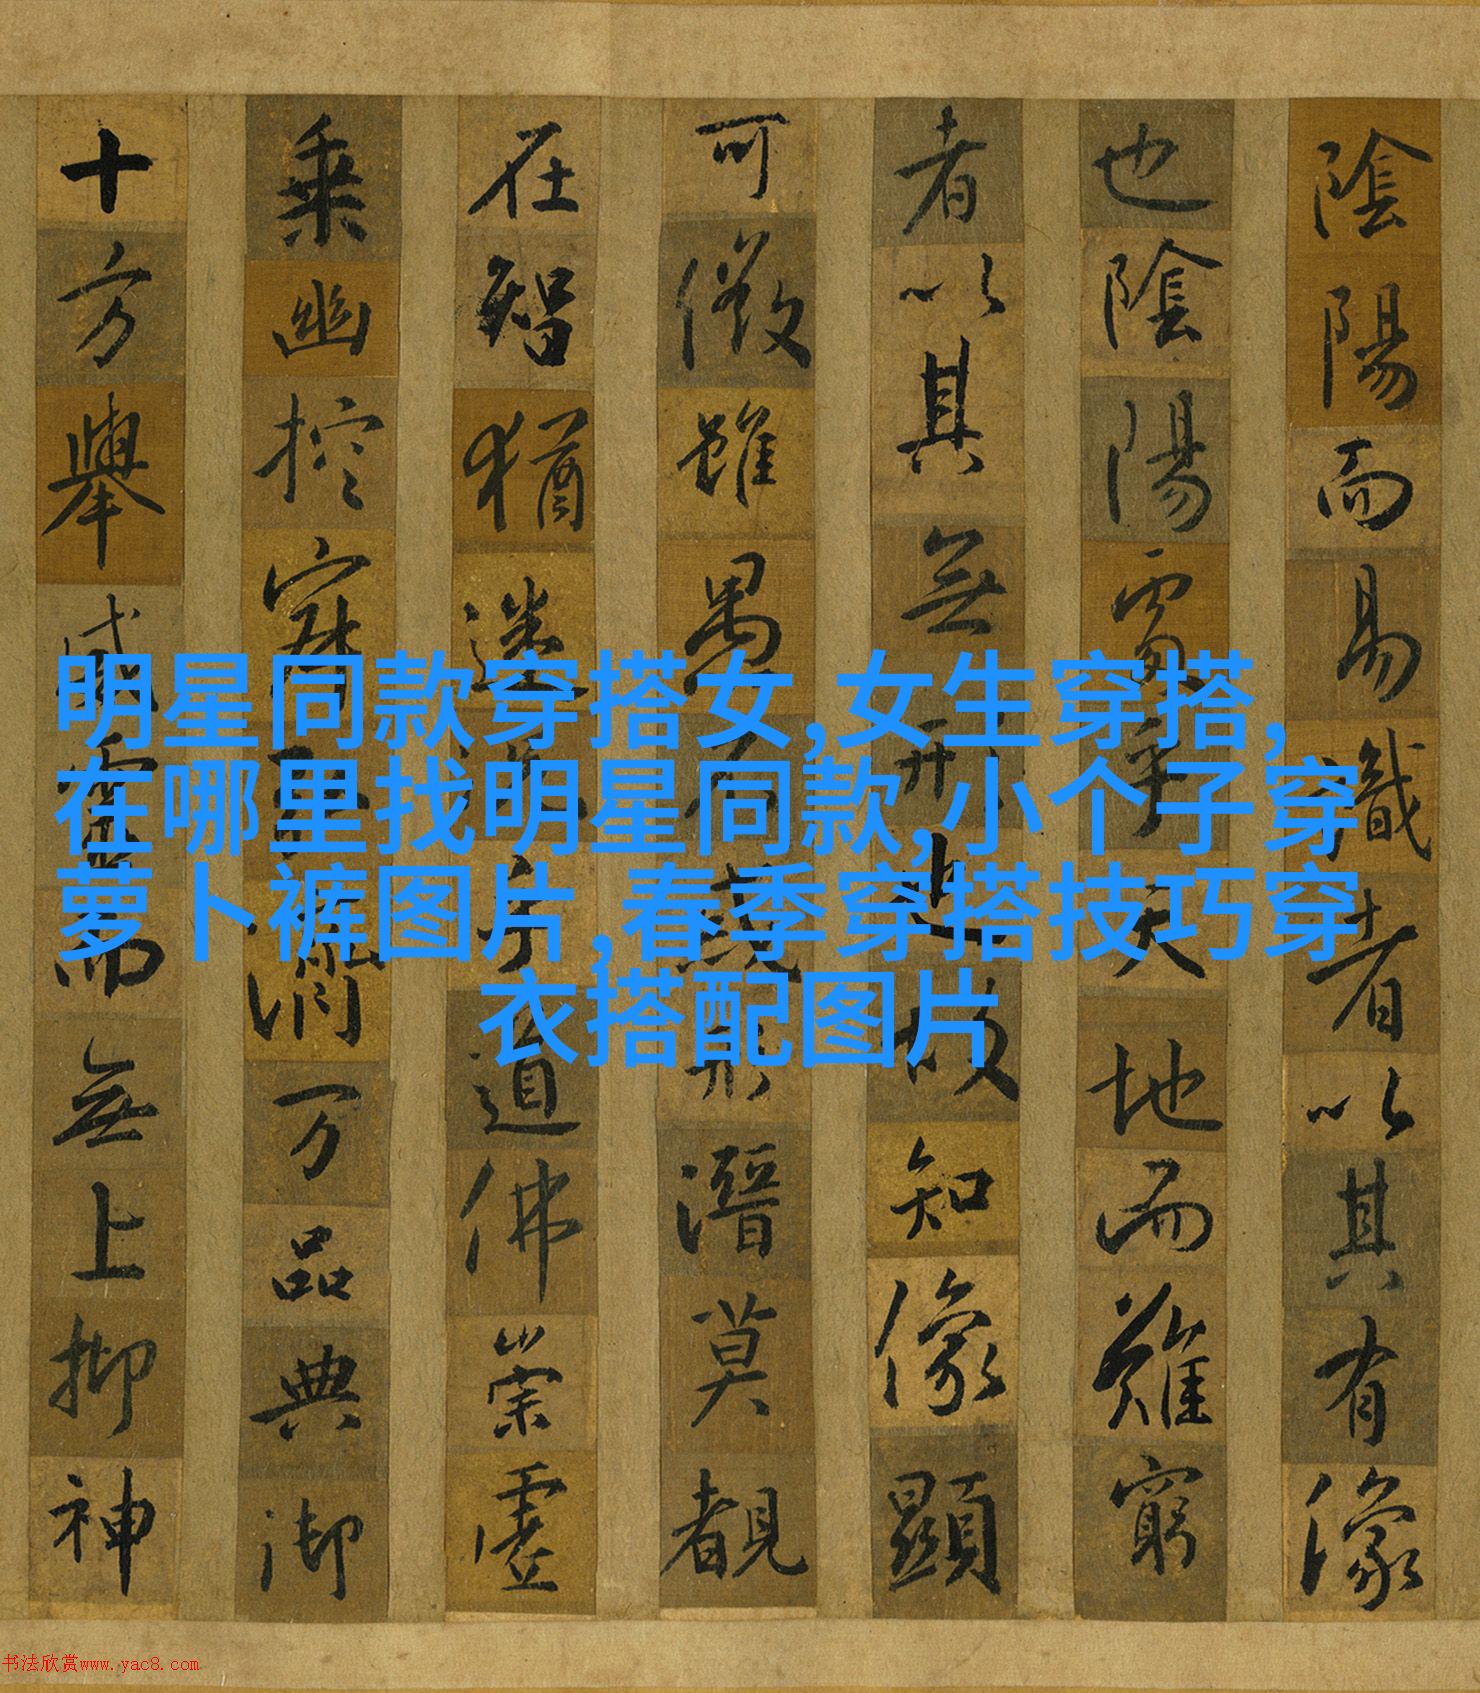 陰陽而易識者以其有像
也陰陽處乎天地而難窮
者以其無形也故知像顯
可徵雖愚不惑形潛莫覩
在智猶迷況乎道佛崇虛
乘幽控寂弘濟万品典御
十方舉威靈而無上抑神
明星同款穿搭女,女生穿搭,
在哪里找明星同款,小个子穿
萝卜裤图片,春季穿搭技巧穿
衣搭配图片
书法欣赏www.yac8.com